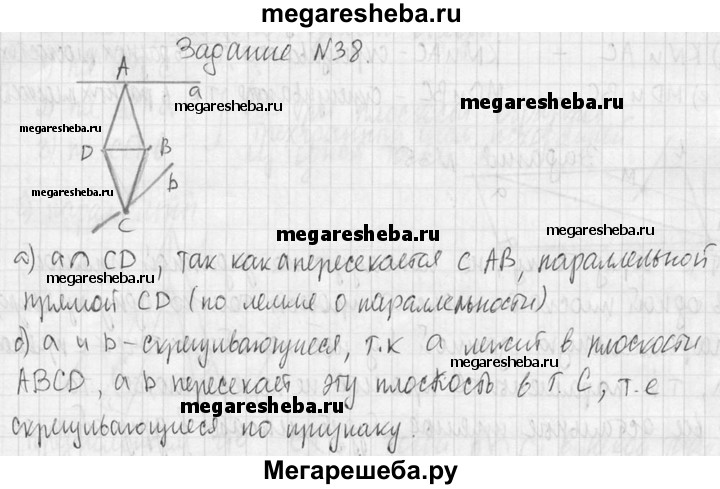 megaresheba.ru
Задание №38.
A
a
megaresheba.ru
megaresheba.ru
megaresheba.ru
D
B
megaresheba.ru
b
C
megaresheba.ru
megaresheba.ru
а) a∩CD, так как a пересекается с AB, параллельной
megaresheba.ru
прямой CD (по лемме о параллельности)
б) a и b - скрещивающиеся, т.к a лежит в плоскости
ABCD, а b пересекает эту плоскость в т. C, т.е
megaresheba.ru
megaresheba.ru
скрещивающиеся по признаку.
Мегарешеба.ру